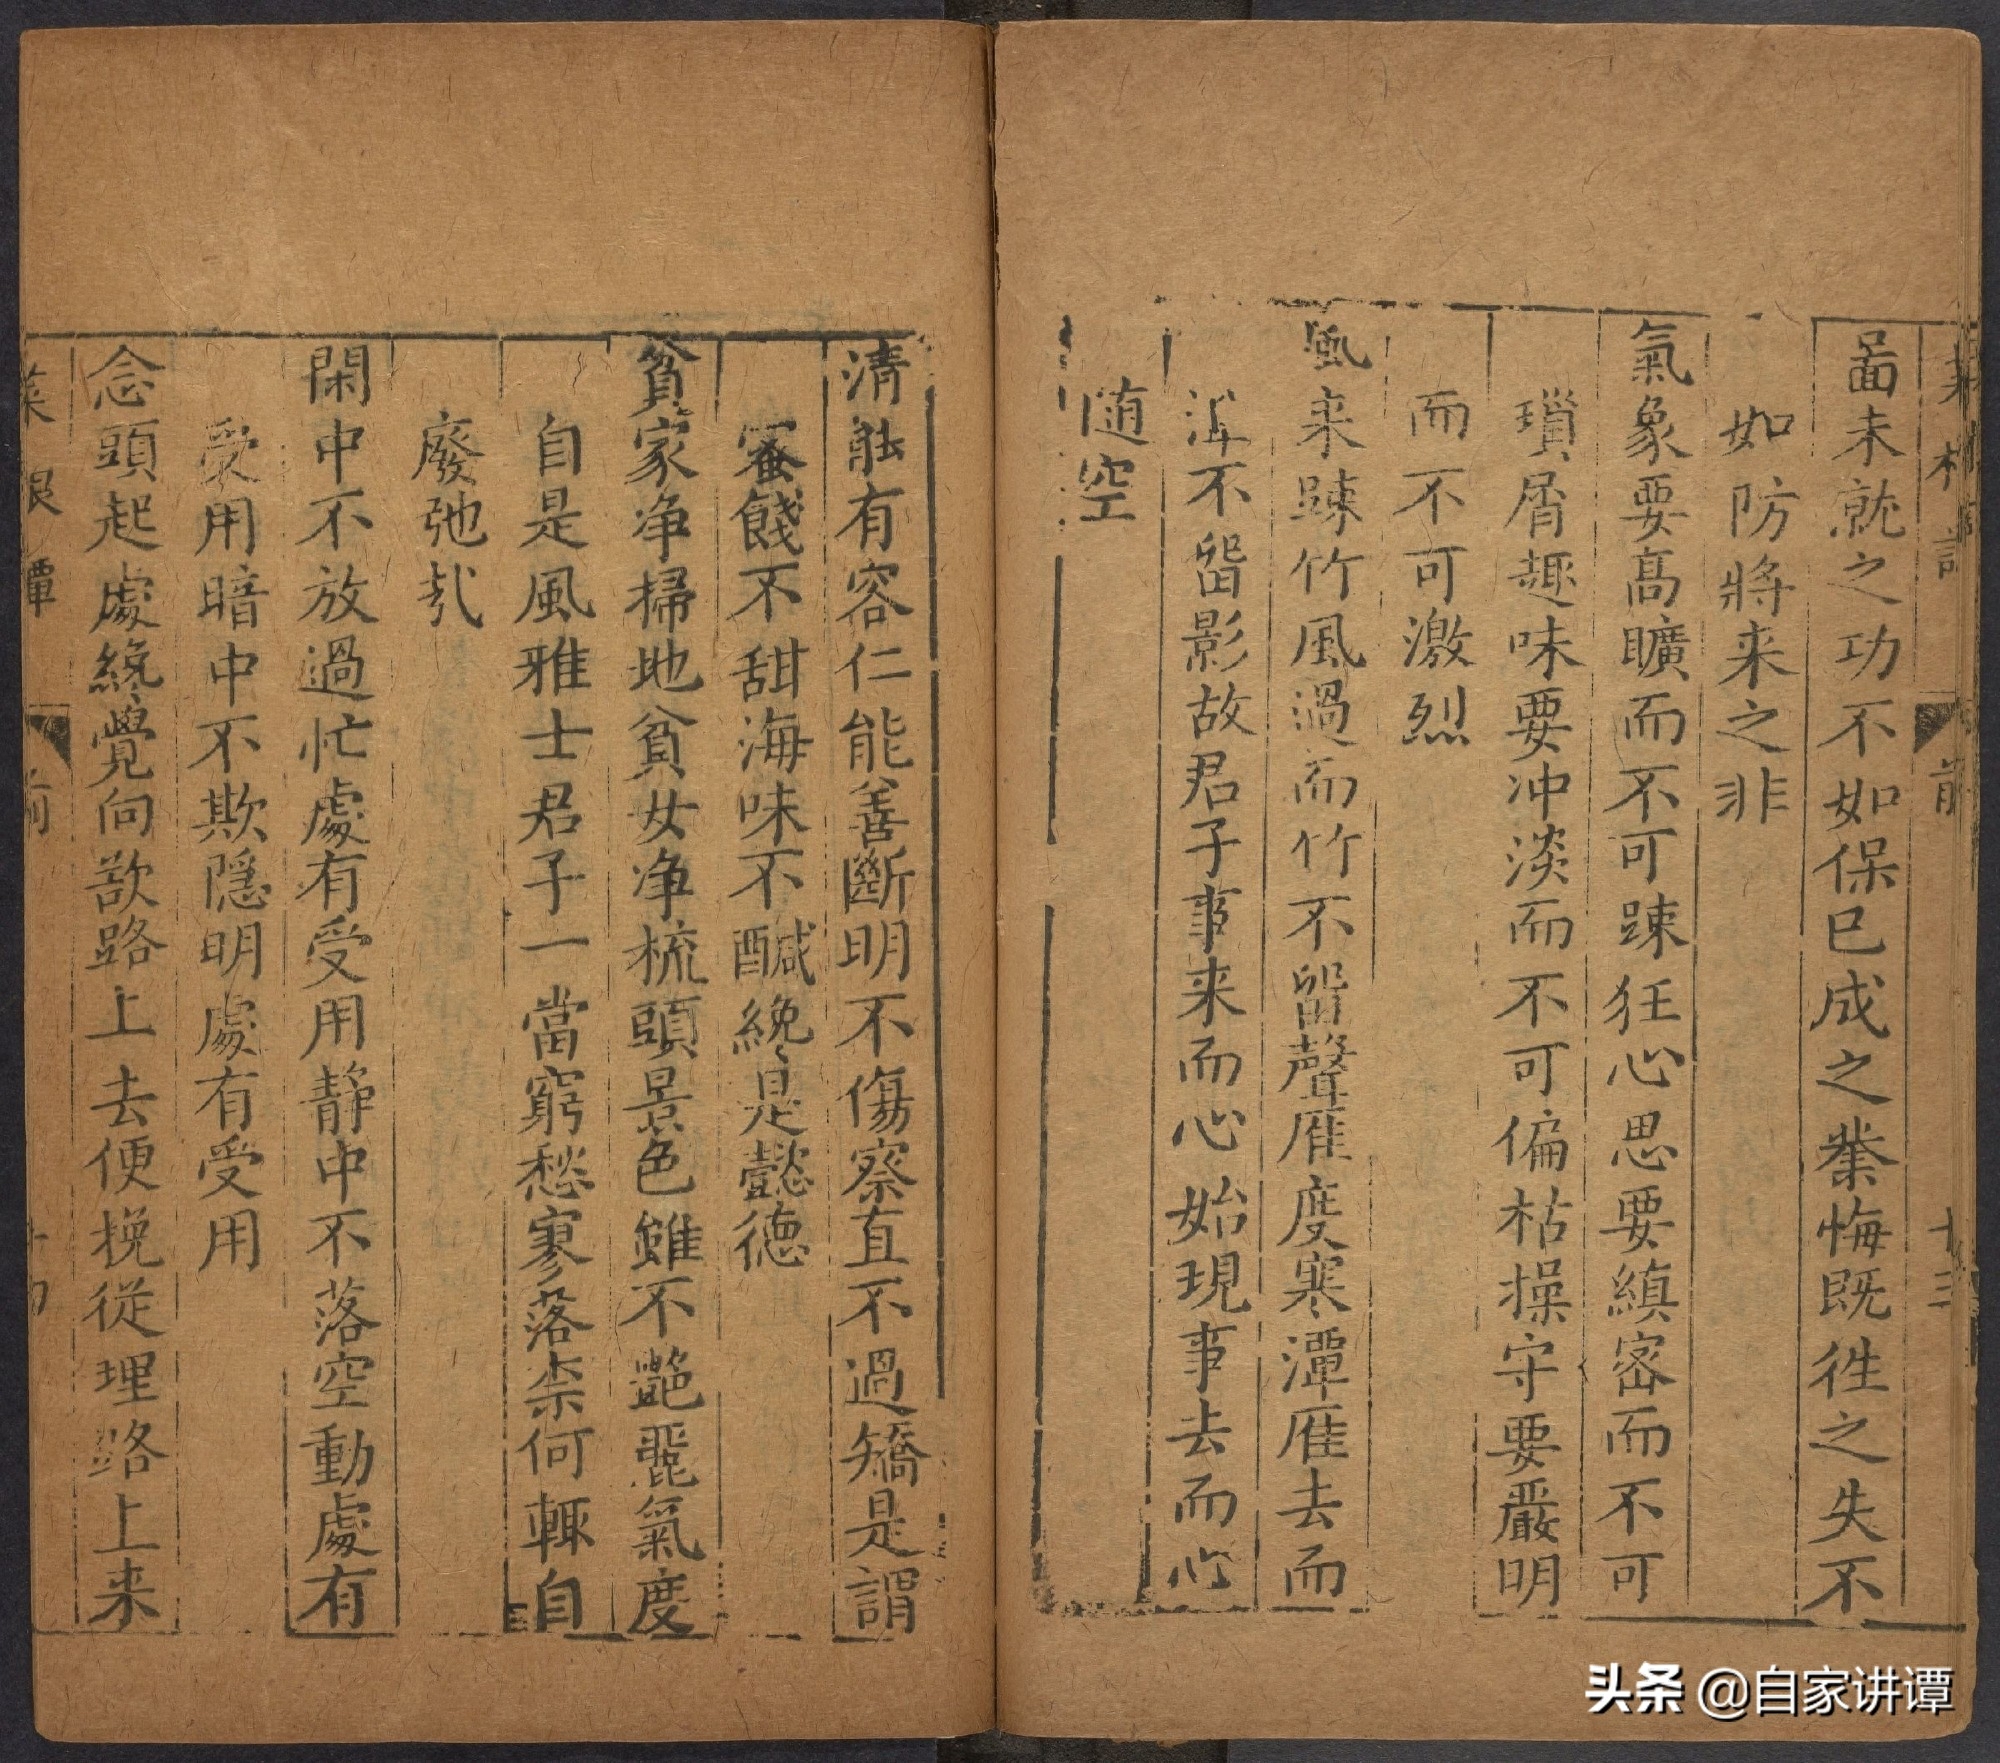 菜根譚 前 十三
啚未就之功不如保已成之業悔既徃之失不
如防將来之非
氣象要髙曠而不可踈狂心思要縝宻而不可
瑣屑趣味要冲淡而不可偏枯操守要嚴明
而不可激烈
風来踈竹風過而竹不畱聲雁度寒潭雁去而
潭不畱影故君子事来而心始現事去而心
随空
清能有容仁能善斷明不傷察直不過矯是謂
蜜餞不甜海味不醎纔是懿德
貧家净掃地貧女净梳頭景色雖不艶麗氣度
自是風雅士君子一當窮愁寥落柰何輒自
廢弛㢤
閑中不放過忙處有受用静中不落空動處有
受用暗中不欺隠明處有受用
念頭起處纔覺向欲路上去便挽從理路上来
菜根譚 前
头条 @自家讲谭